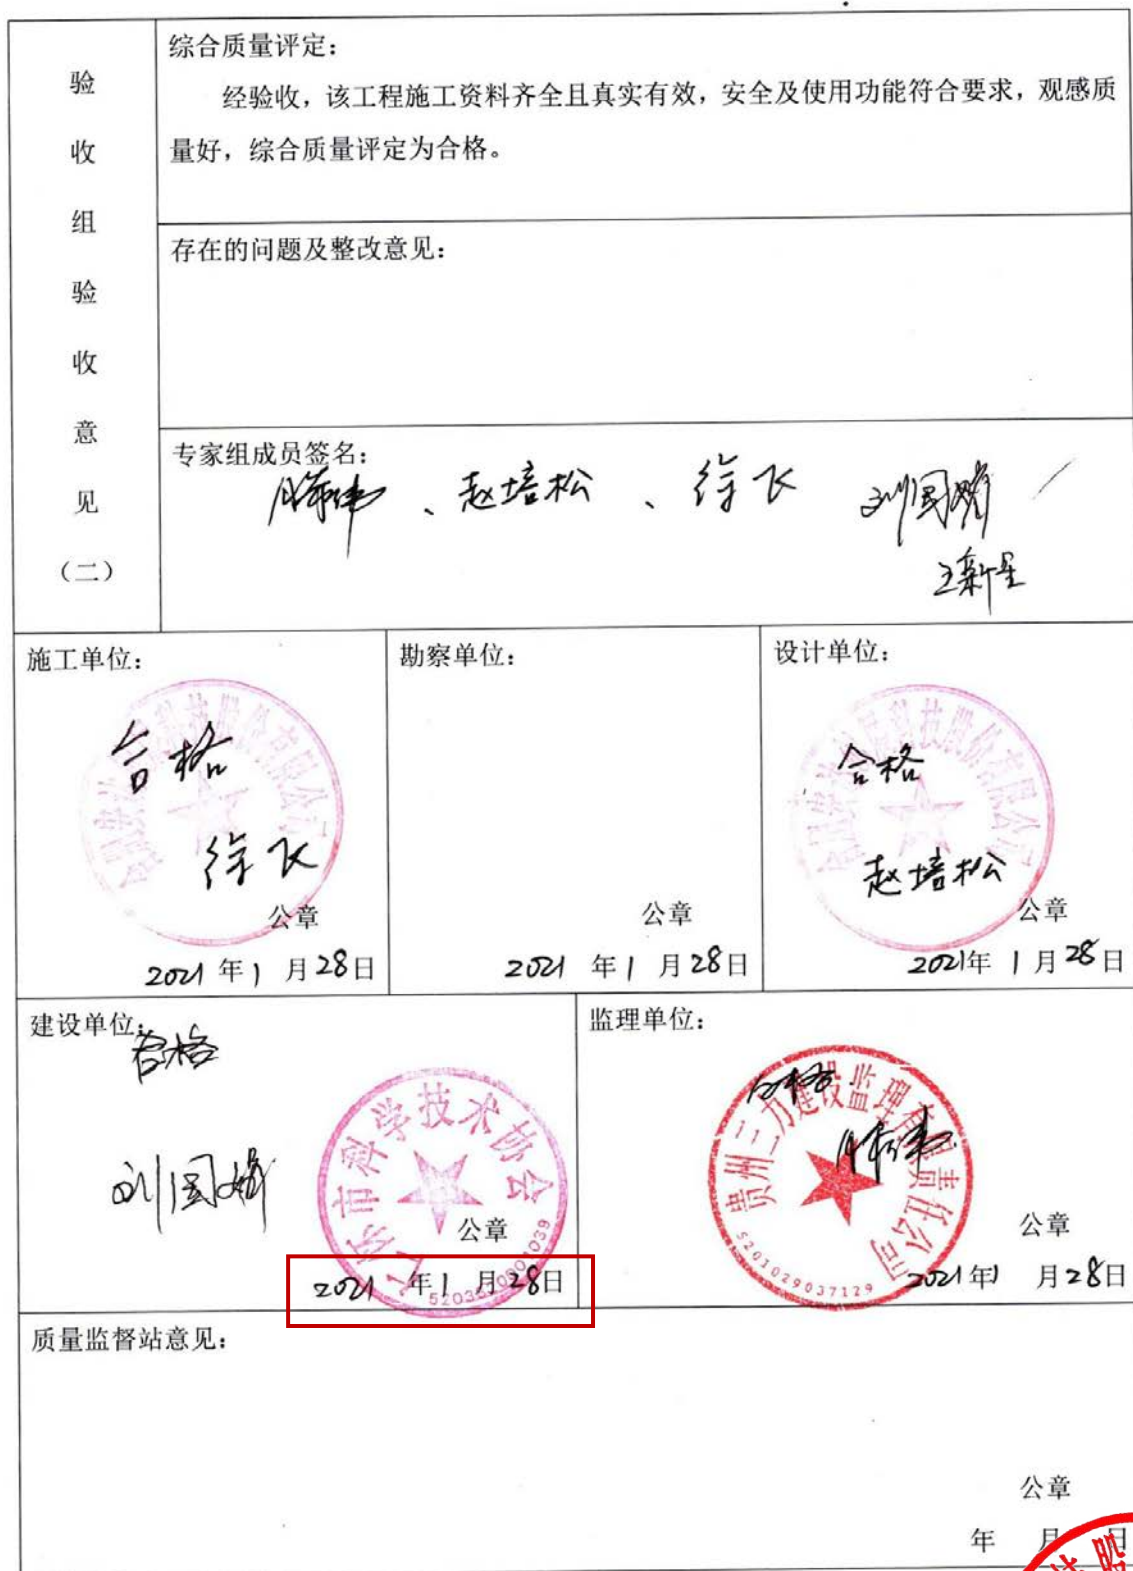 验收组验收意见(二)
综合质量评定：
经验收，该工程施工资料齐全且真实有效，安全及使用功能符合要求，观感质
量好，综合质量评定为合格。
存在的问题及整改意见：
专家组成员签名：
、赵培松、徐飞 刘国
王新星
施工单位：
合格
科技股份有限公司
徐飞
公章
2021年1月28日
勘察单位：
公章
2021年1月28日
设计单位：
合格
科技股份有限公司
赵培松
公章
2021年1月28日
建设单位：
合格
刘国
市科学技术协会
公章
2021年1月28日
监理单位：
合格
贵州三力建设监理有限责任公司
5201029037129
公章
2021年1月28日
质量监督站意见：
公章
年 月 日
股